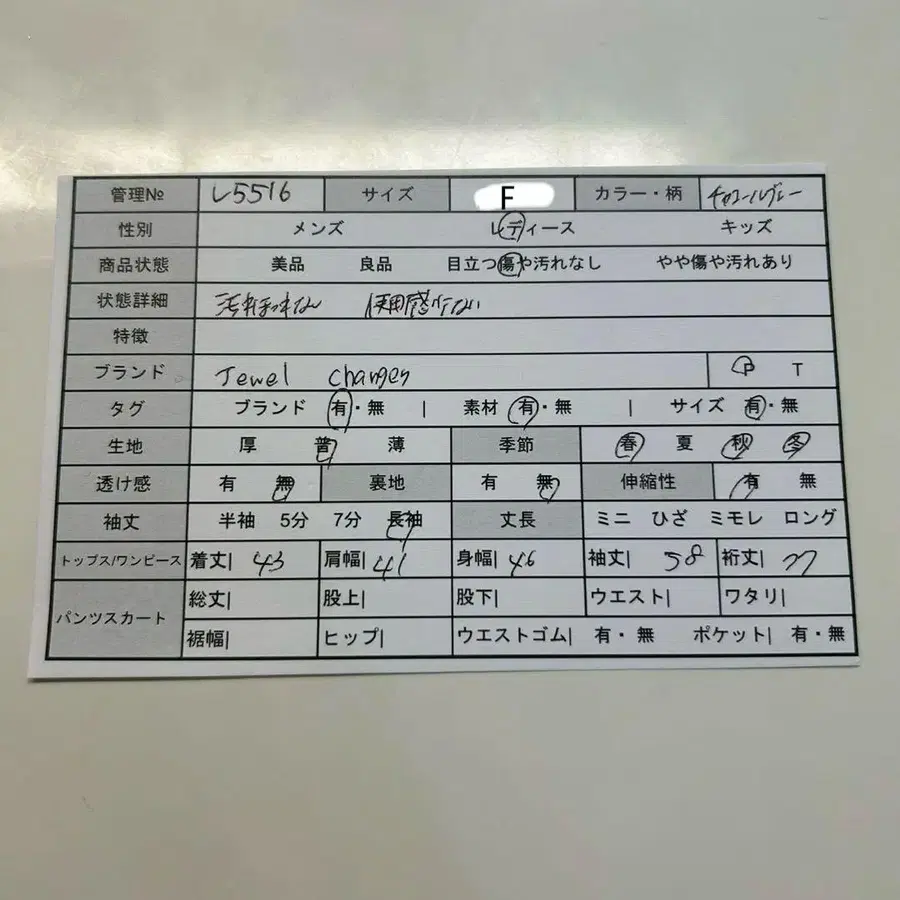 管理№ L5516 サイズ F カラー・柄 チャコールグレー
性別 メンズ レディース キッズ
商品状態 美品 良品 目立つ傷や汚れなし やや傷や汚れあり
状態詳細 汚れほつれなし 使用感少ない
特徴
ブランド Jewel Changes P T
タグ ブランド 有・無 | 素材 有・無 | サイズ 有・無
生地 厚 普 薄 季節 春 夏 秋 冬
透け感 有 無 裏地 有 無 伸縮性 有 無
袖丈 半袖 5分 7分 長袖 丈長 ミニ ひざ ミモレ ロング
トップス/ワンピース 着丈| 43 肩幅| 41 身幅| 46 袖丈| 58 裄丈| 77
パンツスカート 総丈| 股上| 股下| ウエスト| ワタリ|
裾幅| ヒップ| ウエストゴム| 有・無 ポケット| 有・無